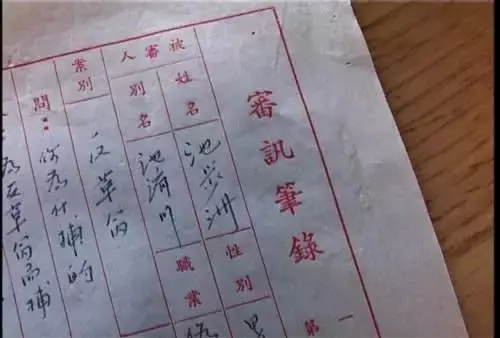 審訊筆錄
第一
被審人
姓名 池步洲 性別 男
別名 池濟川 職業
案別 反革命
問：你為什捕的
為反革命而捕